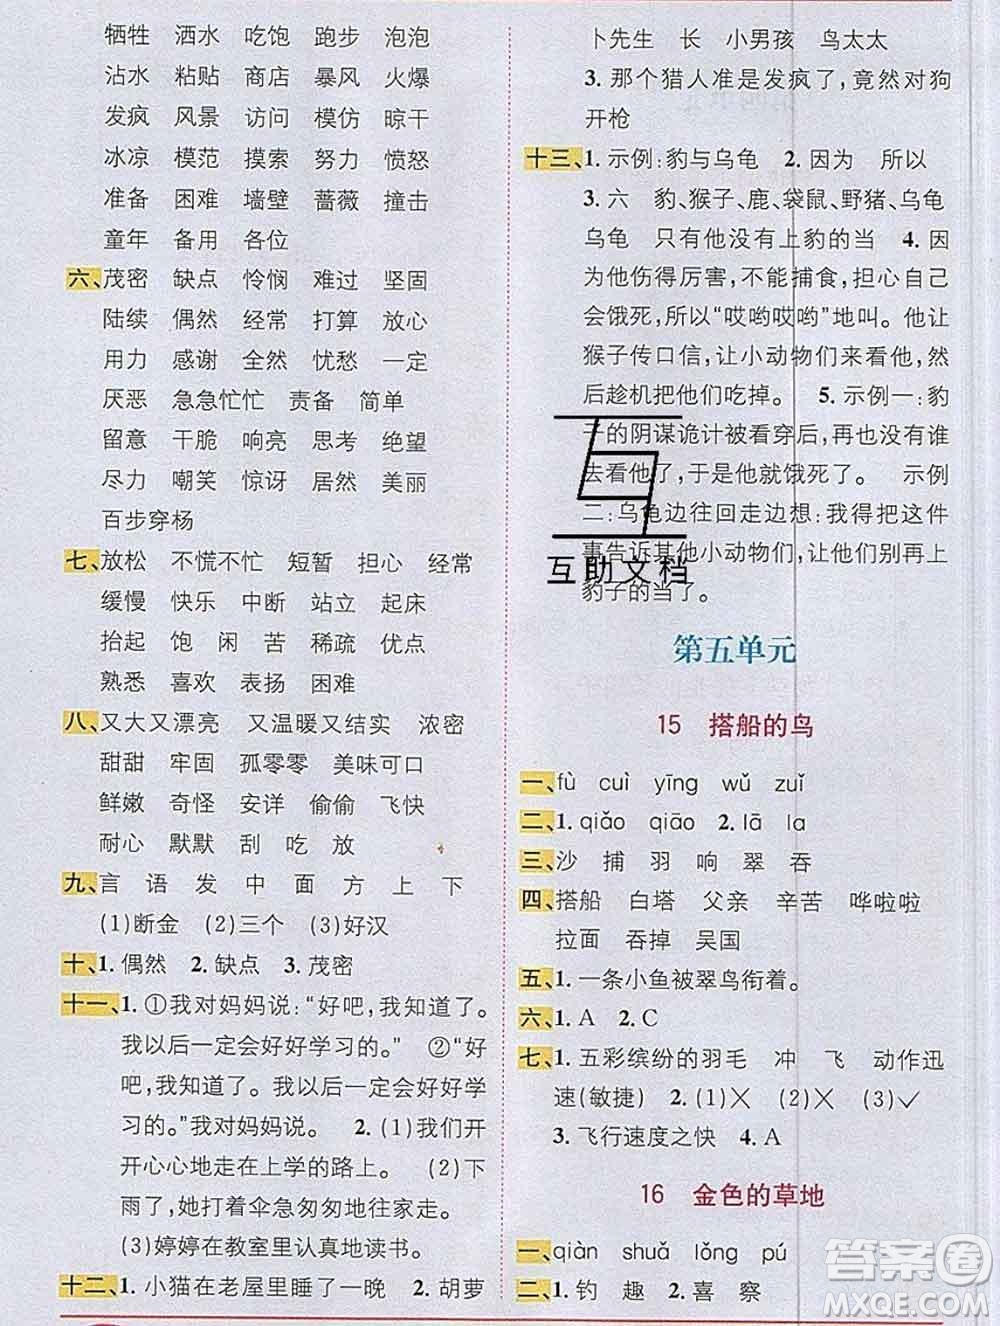 牺牲 洒水 吃饱 跑步 泡泡
沾水 粘贴 商店 暴风 火爆
发疯 风景 访问 模仿 晾干
冰凉 模范 摸索 努力 愤怒
准备 困难 墙壁 蔷薇 撞击
童年 备用 各位
六、茂密 缺点 怜悯 难过 坚固
陆续 偶然 经常 打算 放心
用力 感谢 全然 忧愁 一定
厌恶 急急忙忙 责备 简单
留意 干脆 响亮 思考 绝望
尽力 嘲笑 惊讶 居然 美丽
百步穿杨
七、放松 不慌不忙 短暂 担心 经常
缓慢 快乐 中断 站立 起床
抬起 饱 闲 苦 稀疏 优点
熟悉 喜欢 表扬 困难
八、又大又漂亮 又温暖又结实 浓密
甜甜 牢固 孤零零 美味可口
鲜嫩 奇怪 安详 偷偷 飞快
耐心 默默 刮 吃 放
九、言 语 发 中 面 方 上 下
(1)断金 (2)三个 (3)好汉
十、1. 偶然 2. 缺点 3. 茂密
十一、1. ①我对妈妈说:“好吧,我知道了。
我以后一定会好好学习的。” ②“好
吧,我知道了。我以后一定会好好学
习的。”我对妈妈说。 2. (1)我们开
开心心地走在上学的路上。 (2)下
雨了,她打着伞急匆匆地往家走。
(3)婷婷在教室里认真地读书。
十二、1. 小猫在老屋里睡了一晚 2. 胡萝
卜先生 长 小男孩 鸟太太
3. 那个猎人准是发疯了,竟然对狗
开枪
十三、1. 示例:豹与乌龟 2. 因为 所以
3. 六 豹、猴子、鹿、袋鼠、野猪、乌龟
乌龟 只有他没有上豹的当 4. 因
为他伤得厉害,不能捕食,担心自己
会饿死,所以“哎哟哎哟”地叫。他让
猴子传口信,让小动物们来看他,然
后趁机把他们吃掉。 5. 示例一:豹
子的阴谋诡计被看穿后,再也没有谁
去看他了,于是他就饿死了。 示例
二:乌龟边往回走边想:我得把这件
事告诉其他小动物们,让他们别再上
豹子的当了。
互助文档
第五单元
15 搭船的鸟
一、fù cuì yīng wǔ zuǐ
二、1. qiǎo qiāo 2. lā la
三、沙 捕 羽 响 翠 吞
四、搭船 白塔 父亲 辛苦 哗啦啦
拉面 吞掉 吴国
五、1. 一条小鱼被翠鸟衔着。
六、1. A 2. C
七、1. 五彩缤纷的羽毛 冲 飞 动作迅
速(敏捷) 2. (1)✕ (2)✕ (3)✓
3. 飞行速度之快 4. A
16 金色的草地
一、qiàn shuǎ lǒng pú
二、1. 钓 趣 2. 喜 察
答案圈
MXQE.COM